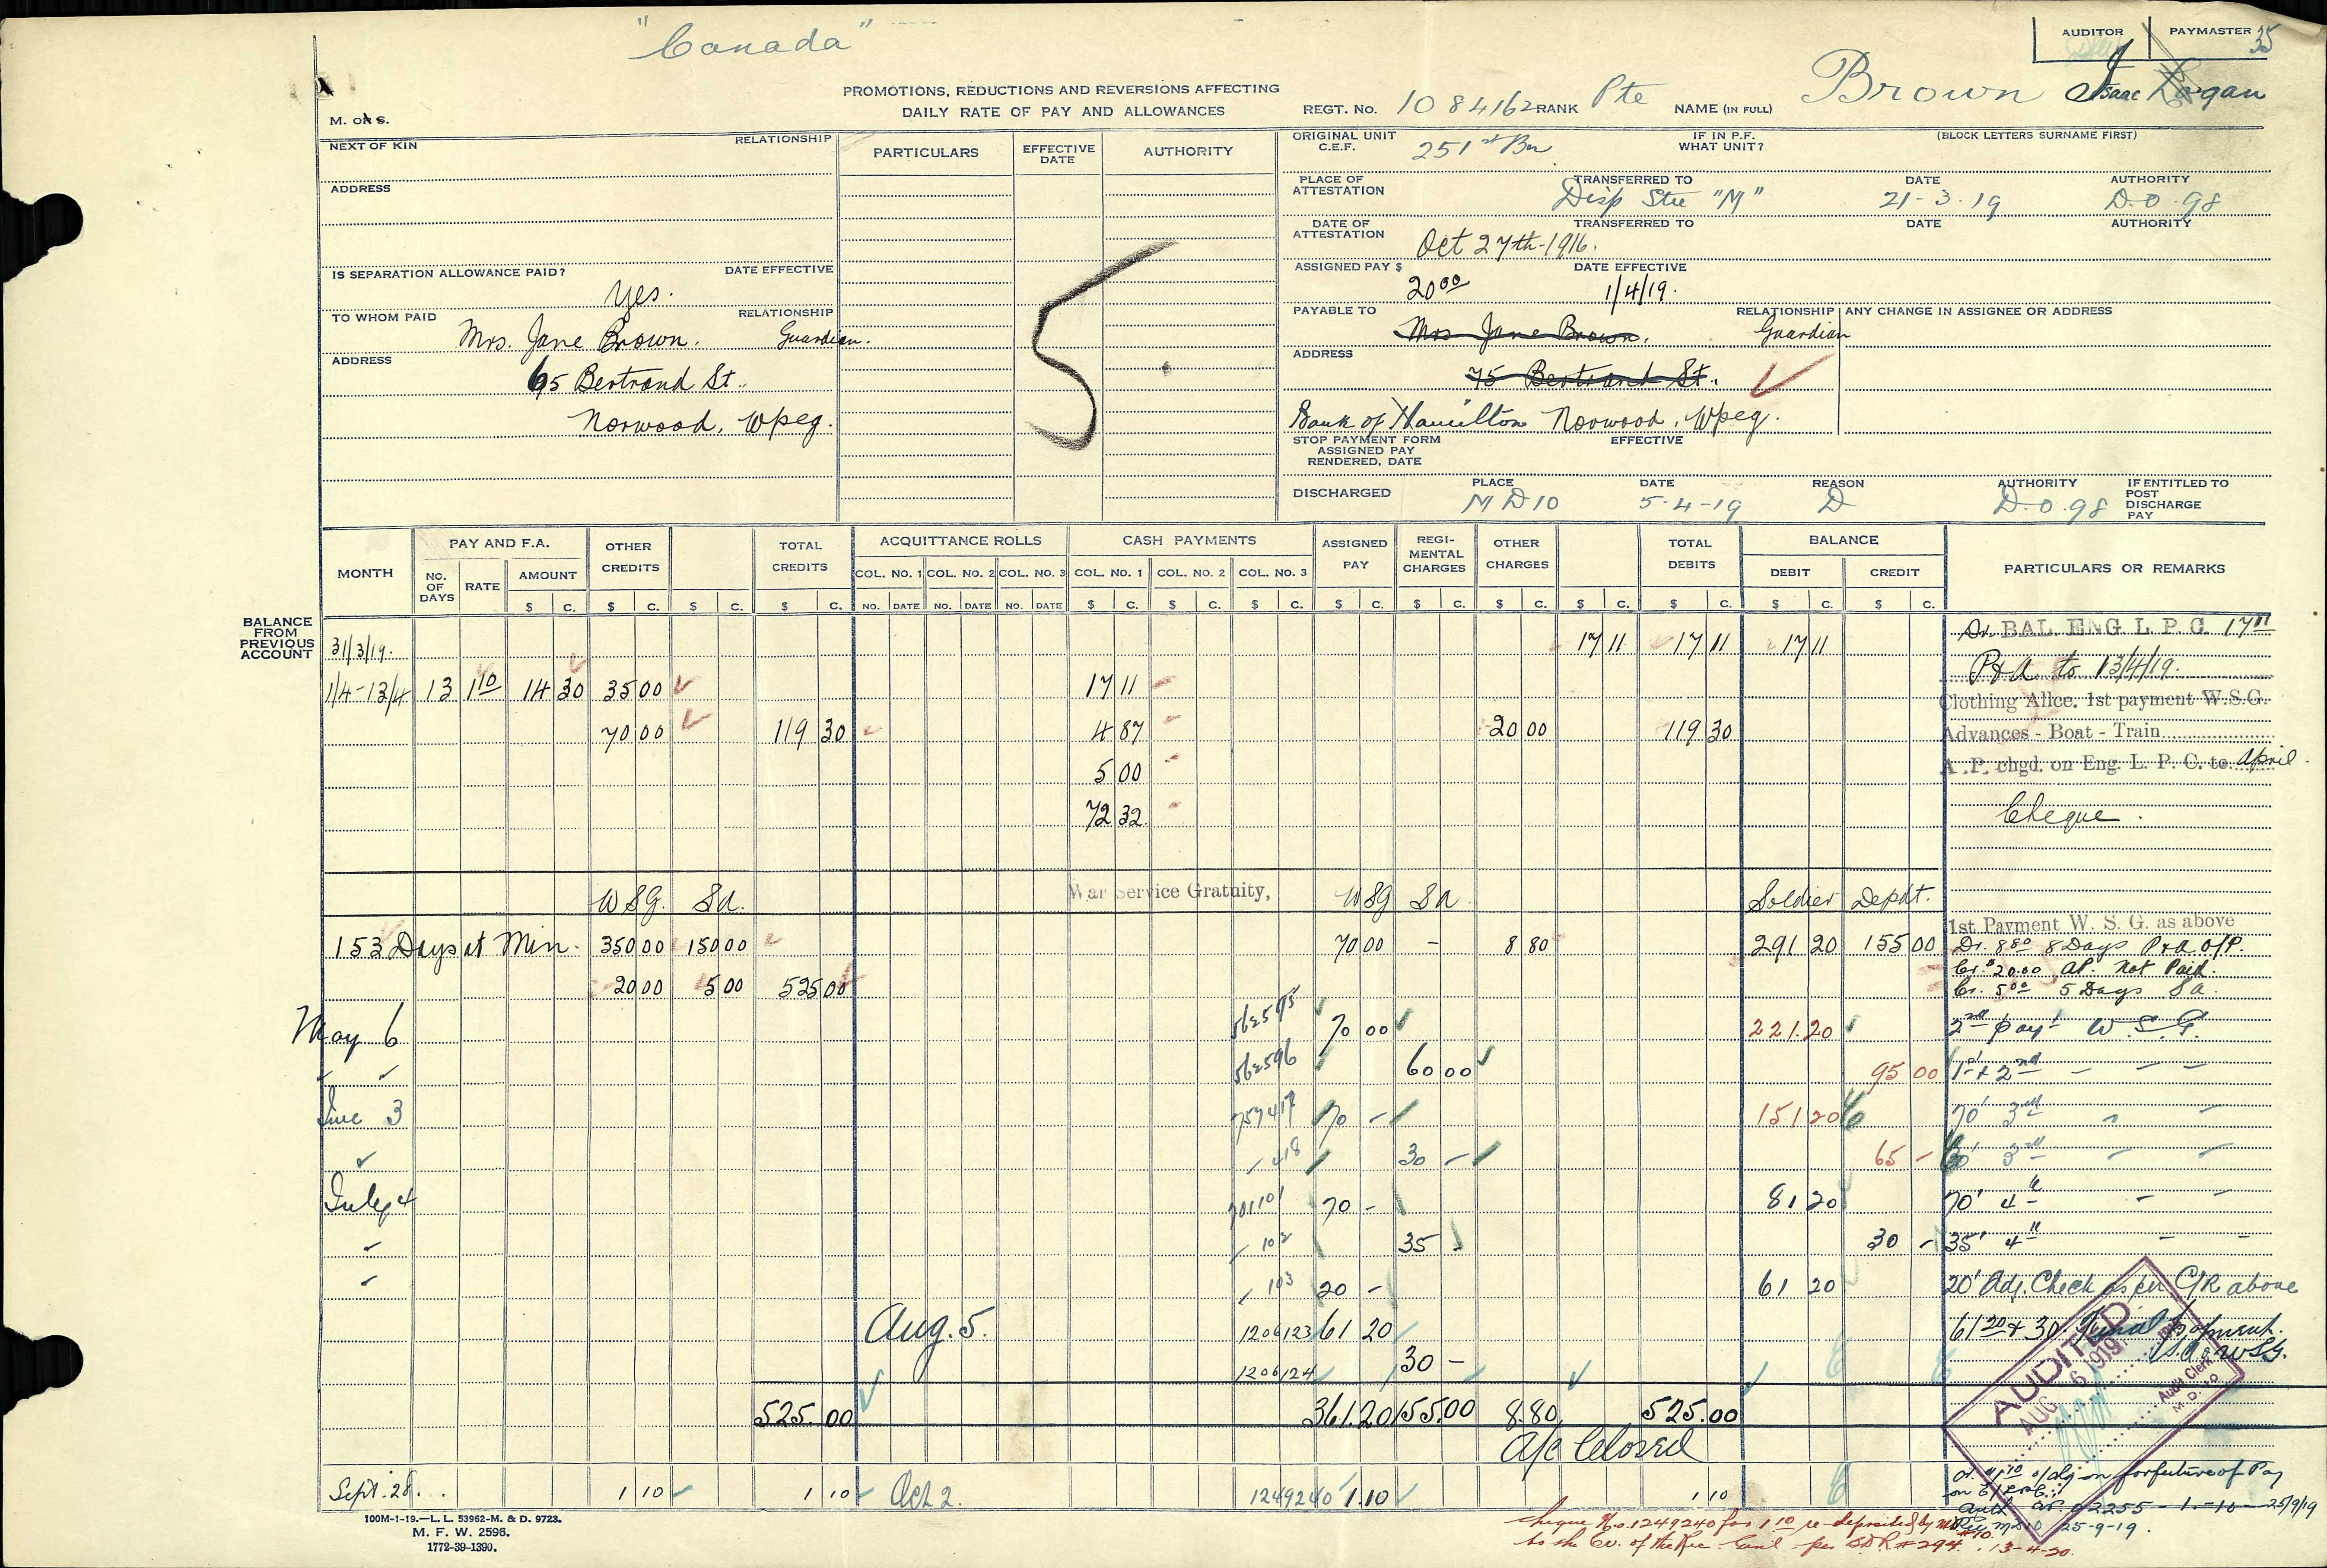 "Canada"
AUDITOR
PAYMASTER 35
M. OR S.
PROMOTIONS, REDUCTIONS AND REVERSIONS AFFECTING
DAILY RATE OF PAY AND ALLOWANCES
REGT. No. 1084162 RANK Pte NAME (IN FULL) Brown Isaac Logan
(BLOCK LETTERS SURNAME FIRST)
NEXT OF KIN RELATIONSHIP
ADDRESS
PARTICULARS EFFECTIVE DATE AUTHORITY
ORIGINAL UNIT C.E.F. 251st Bn IF IN P.F. WHAT UNIT?
PLACE OF ATTESTATION TRANSFERRED TO Disp Stn "M" DATE 21-3-19 AUTHORITY D.O. 98
DATE OF ATTESTATION Oct 27th-1916. TRANSFERRED TO DATE AUTHORITY
IS SEPARATION ALLOWANCE PAID? Yes. DATE EFFECTIVE
TO WHOM PAID Mrs. Jane Brown. RELATIONSHIP Guardian.
ADDRESS 65 Bertrand St.
Norwood, Wpeg.
5
ASSIGNED PAY $ 20.00 DATE EFFECTIVE 1/4/19.
PAYABLE TO Mrs Jane Brown. RELATIONSHIP Guardian ANY CHANGE IN ASSIGNEE OR ADDRESS
ADDRESS 75 Bertrand St.
Bank of Hamilton Norwood, Wpeg.
STOP PAYMENT FORM ASSIGNED PAY RENDERED, DATE EFFECTIVE
DISCHARGED PLACE M D 10 DATE 5-4-19 REASON D AUTHORITY D.O. 98 IF ENTITLED TO POST DISCHARGE PAY
MONTH PAY AND F.A. OTHER CREDITS TOTAL CREDITS ACQUITTANCE ROLLS CASH PAYMENTS ASSIGNED PAY REGI-MENTAL CHARGES OTHER CHARGES TOTAL DEBITS BALANCE PARTICULARS OR REMARKS
NO. OF DAYS RATE AMOUNT COL. NO. 1 COL. NO. 2 COL. NO. 3 COL. NO. 1 COL. NO. 2 COL. NO. 3 DEBIT CREDIT
$ C. $ C. $ C. $ C. NO. DATE NO. DATE NO. DATE $ C. $ C. $ C. $ C. $ C. $ C. $ C. $ C. $ C. $ C.
BALANCE FROM PREVIOUS ACCOUNT
31/3/19. 17 11 17 11 17 11 Dr. BAL ENG L.P.C. 17 11
P & A to 13/4/19.
1/4-13/4 13 1 10 14 30 35 00 17 11 Clothing Allce. 1st payment W.S.G.
70 00 119 30 4 87 20 00 119 30 Advances - Boat - Train
5 00 A.P. chgd. on Eng. L. P. C. to April.
72 32 Cheque.
WSG. SA. War Service Gratuity, WSG SA Soldier Depdt.
1st Payment W. S. G. as above
153 Days at Min. 350 00 150 00 70 00 - 8 80 291 20 155 00 Dr. 8.80 8 Days P&A O/P.
Cr. $20.00 AP. Not Paid.
20 00 5 00 525 00 Cr. 5.00 5 Days SA.
May 6 562595 70 00 221.20 2nd payt W. S. G.
562596 60 00 95 00 1st & 2nd
June 3 757417 70 - 151 20 70' 3rd
418 30 - 65 - 30' 3rd
July 4 701101 70 - 81 20 70' 4th
102 35 - 30 - 35' 4th
103 20 - 61 20 20' Adj. Check as per C/R above
Aug. 5. 1206123 61 20 61 20 & 30. Final payment.
1206124 30 - S.A. & WSG.
525.00 361.20 155.00 8.80 525.00
A/c Closed
AUDITED
AUG 6 1919
Audit Clerk
M. D. 10
Sept. 28. 1 10 1 10 Oct 2. 1249240 1.10 1 10
forfeiture of Pay
2255 - 1.-10 - 25/9/19
25-9-19.
Cheque No. 1249240 for 1.10 re-deposited by MD #10.
to the Cr. of the Rec. Genl. per SDR # 294. 13-4-20.
100M-1-19.—L. L. 53962-M. & D. 9723.
M. F. W. 2596.
1772-39-1390.